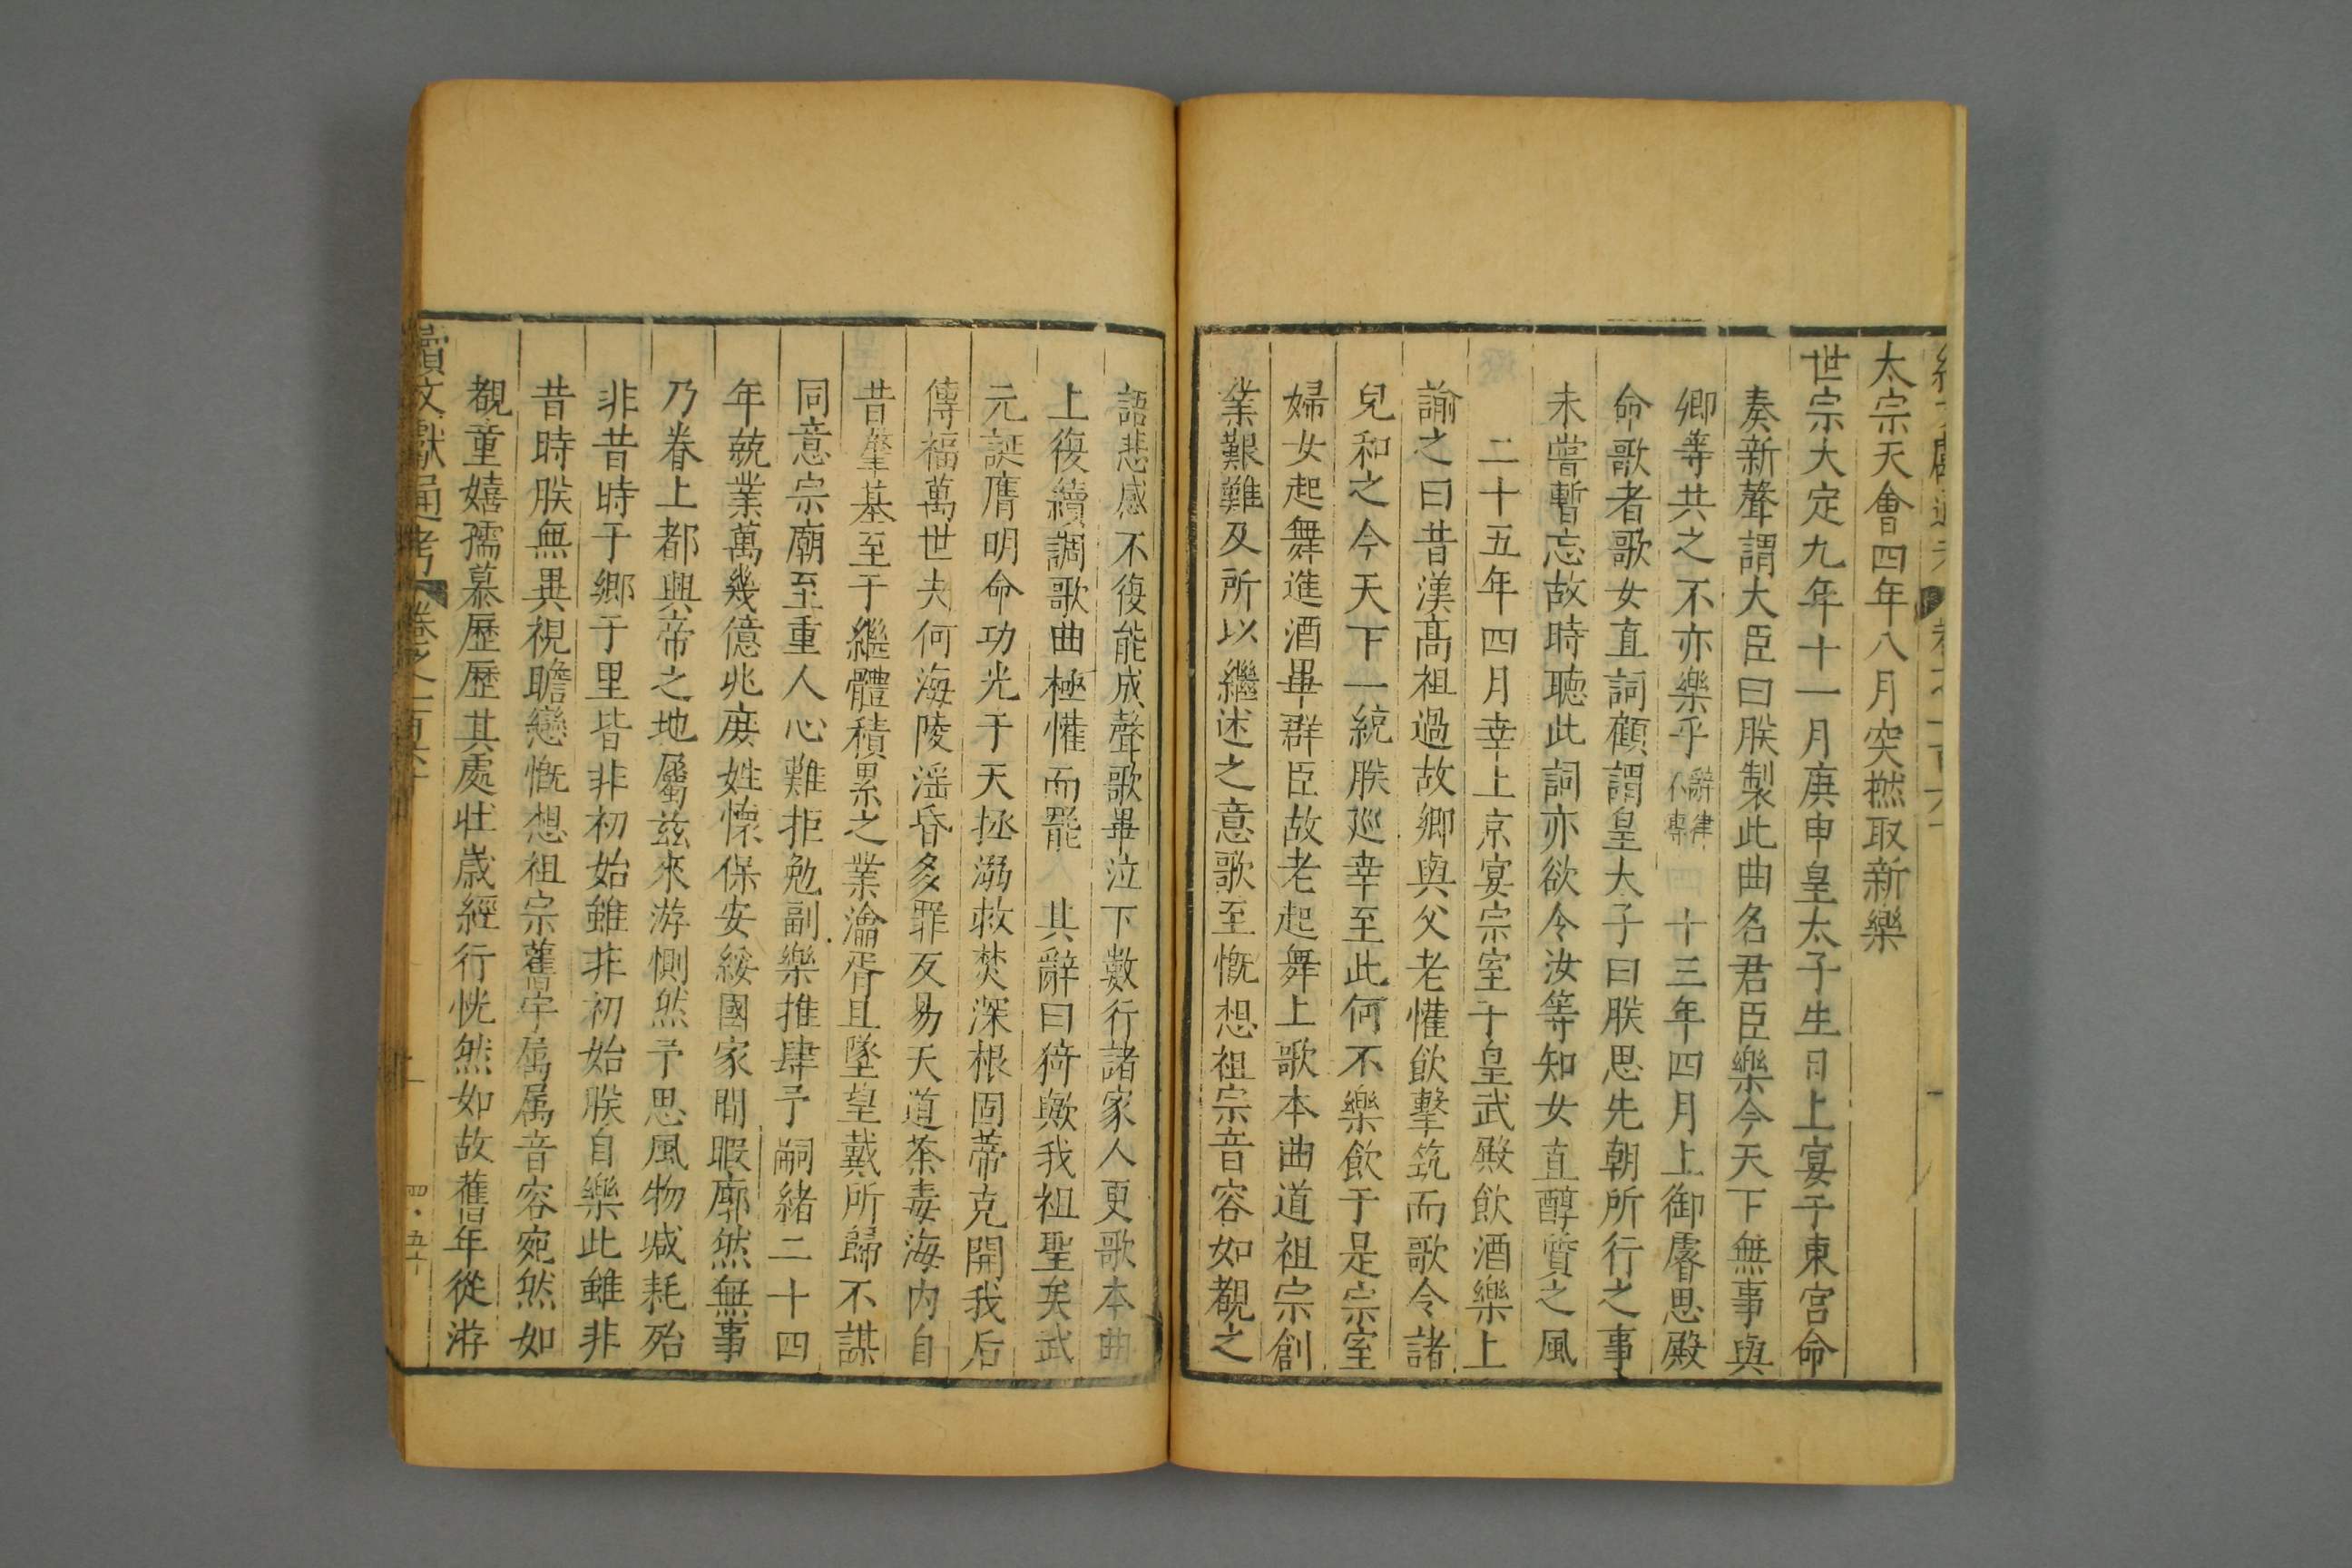 太宗天會四年八月突撚取新樂
世宗大定九年十一月庚申皇太子生日上宴于東宮命
奏新聲謂大臣曰朕製此曲名君臣樂今天下無事與
卿等共之不亦樂乎辭律不傳 十三年四月上御睿思殿
命歌者歌女直詞顧謂皇太子曰朕思先朝所行之事
未嘗暫忘故時聽此詞亦欲令汝等知女直醇質之風
二十五年四月幸上京宴宗室于皇武殿飲酒樂上
諭之曰昔漢高祖過故鄉與父老懽飲擊筑而歌令諸
兒和之今天下一統朕巡幸至此何不樂飲于是宗室
婦女起舞進酒畢群臣故老起舞上歌本曲道祖宗創
業艱難及所以繼述之意歌至慨想祖宗音容如覩之
語悲感不復能成聲歌畢泣下數行諸家人更歌本曲
上復續調歌曲極懽而罷 其辭曰猗歟我祖聖矣武
元誕膺明命功光于天拯溺救焚深根固蔕克開我后
傳福萬世夫何海陵淫昏多罪反易天道荼毒海內自
昔肇基至于繼體積累之業淪胥且墜望戴所歸不謀
同意宗廟至重人心難拒勉副樂推肆予嗣緒二十四
年兢業萬幾億兆庻姓懷保安綏國家閒暇廓然無事
乃眷上都興帝之地屬茲來游惻然予思風物減耗殆
非昔時于鄉于里皆非初始雖非初始朕自樂此雖非
昔時朕無異視瞻戀慨想祖宗舊宇属属音容宛然如
覩童嬉孺慕歷歷其處壯歲經行恍然如故舊年從游
續文獻通考 卷之一百六十
四·五十